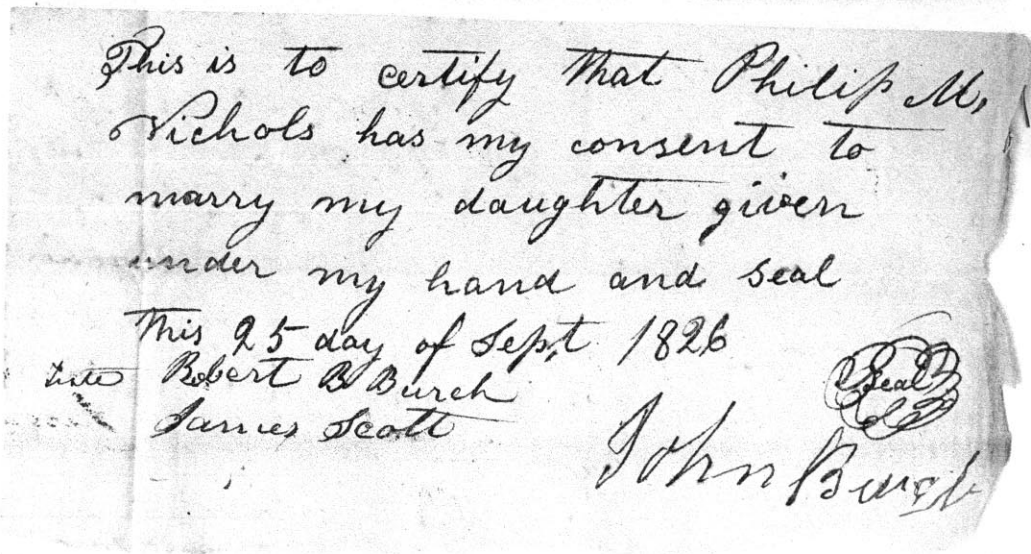 This is to certify that Philip M,
Nichols has my consent to
marry my daughter given
under my hand and seal
this 25 day of Sept, 1826
teste Robert B Burch
James Scott
Seal
John Burch